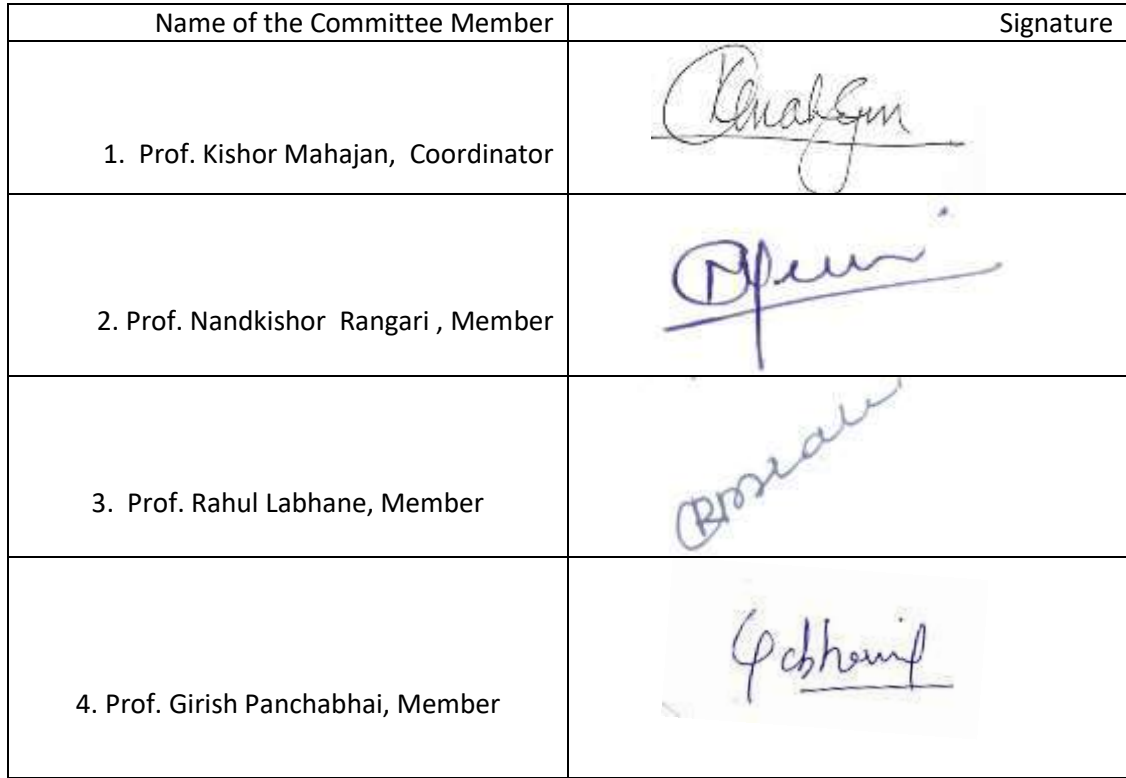 Name of the Committee Member
Signature
1. Prof. Kishor Mahajan, Coordinator
2. Prof. Nandkishor Rangari , Member
3. Prof. Rahul Labhane, Member
4. Prof. Girish Panchabhai, Member